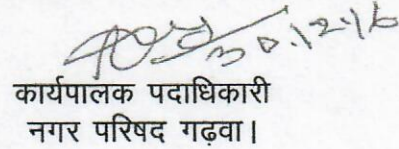 30.12.16
कार्यपालक पदाधिकारी
नगर परिषद गढ़वा।